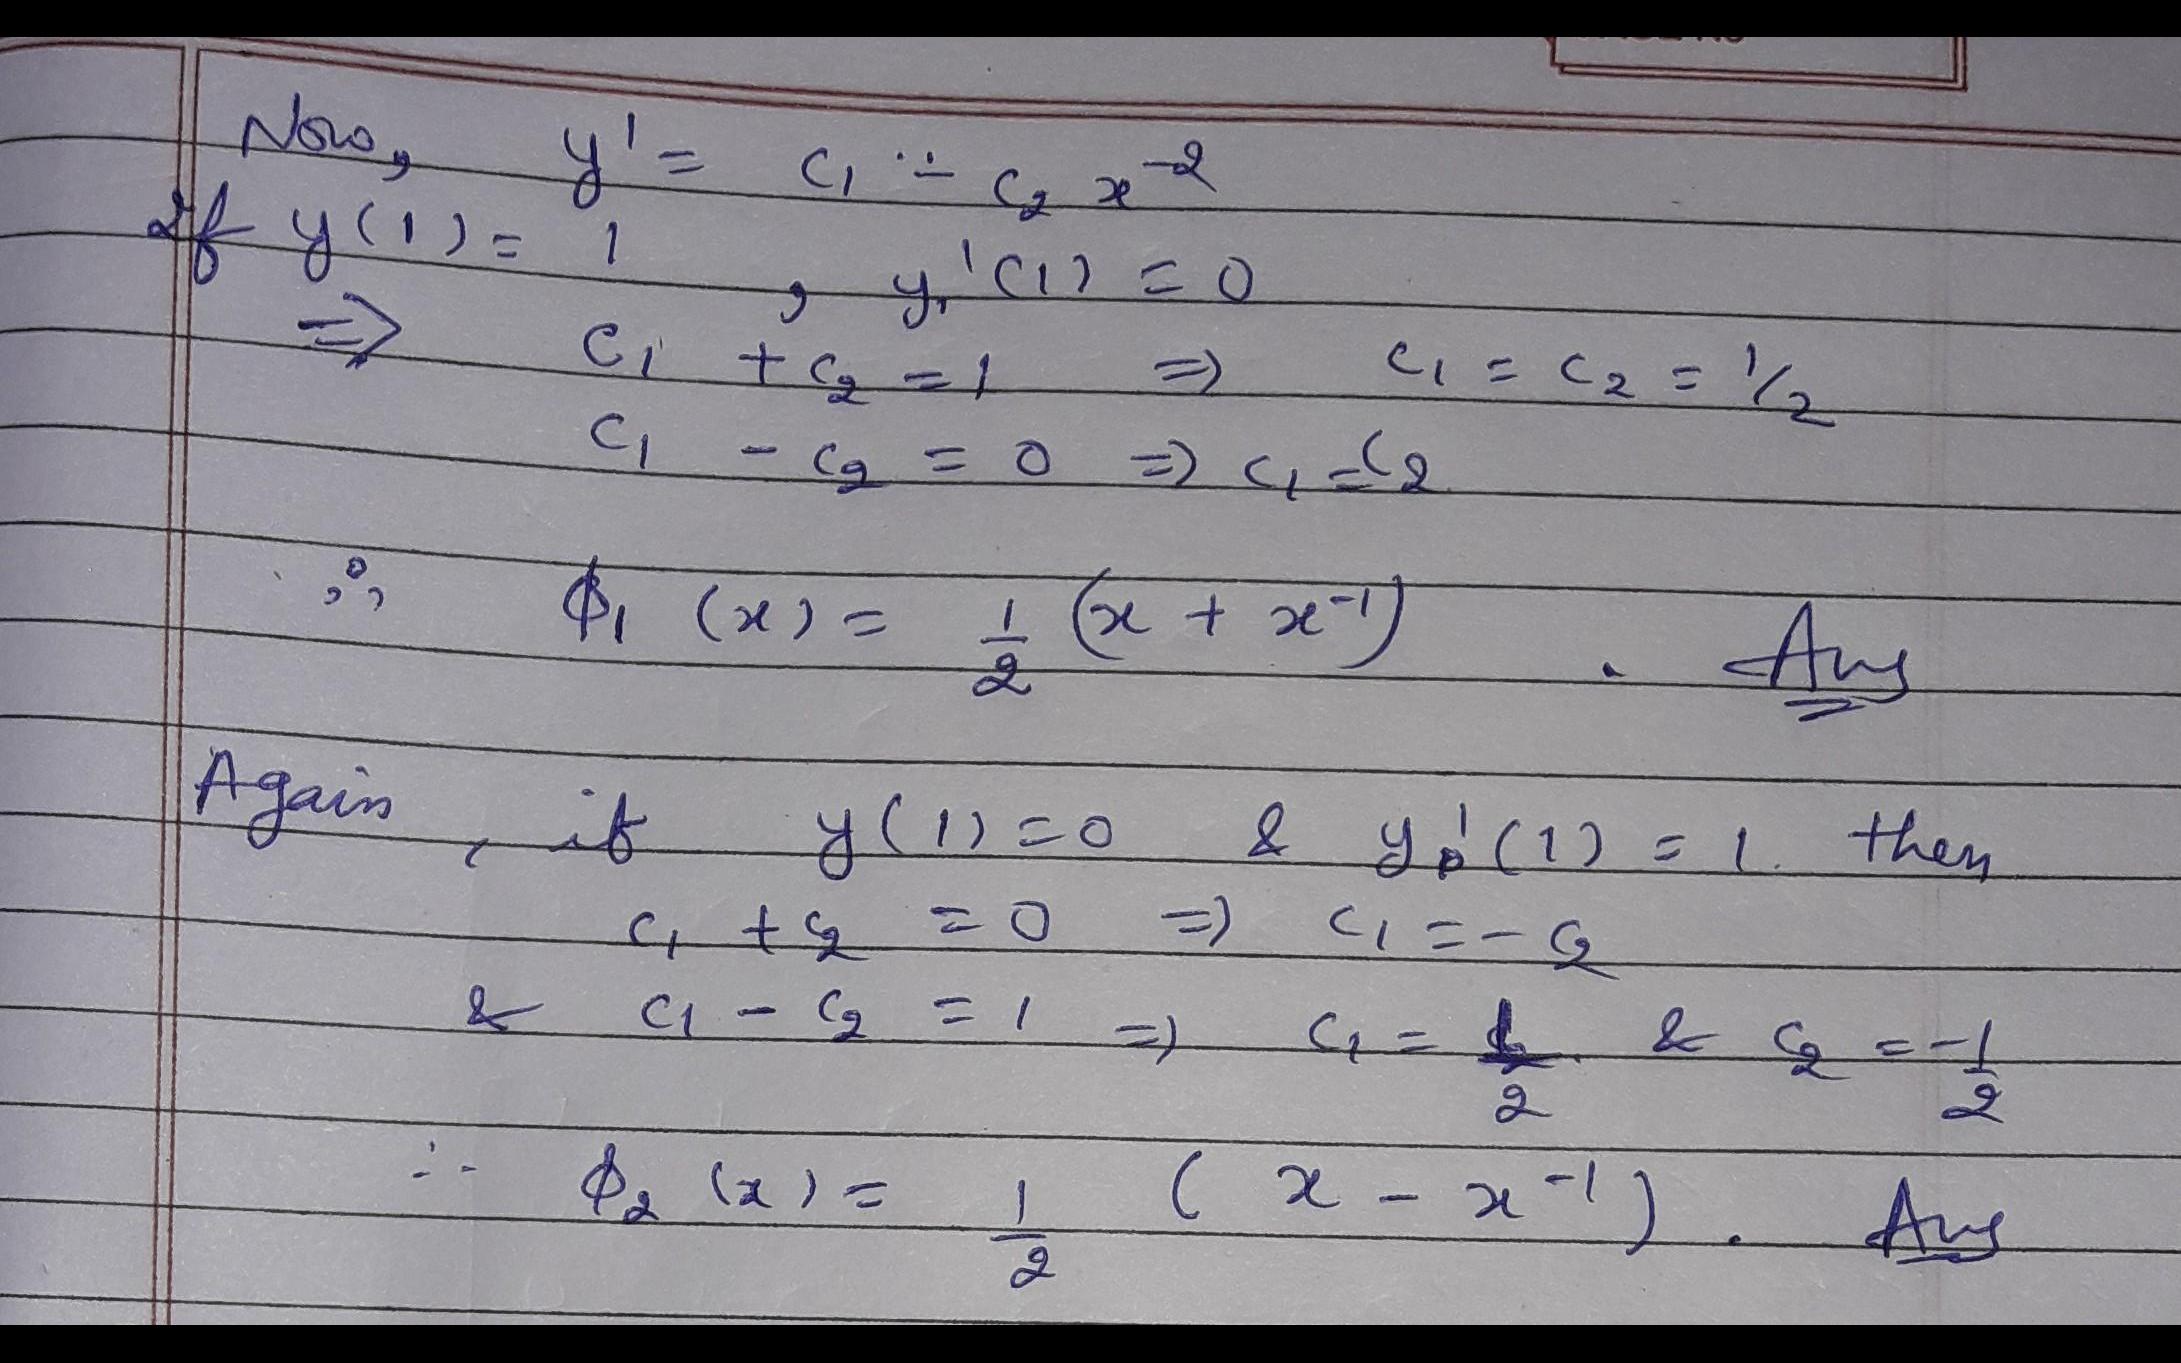 Now, y' = c₁ - c₂ x⁻²
If y(1) = 1 , y'(1) = 0
⇒ c₁ + c₂ = 1 ⇒ c₁ = c₂ = 1/2
c₁ - c₂ = 0 ⇒ c₁ = c₂
∴ ϕ₁ (x) = 1/2 (x + x⁻¹) . Ans
Again, if y(1) = 0 & y'(1) = 1. then
c₁ + c₂ = 0 ⇒ c₁ = - c₂
& c₁ - c₂ = 1 ⇒ c₁ = 1/2 & c₂ = -1/2
∴ ϕ₂ (x) = 1/2 ( x - x⁻¹) . Ans